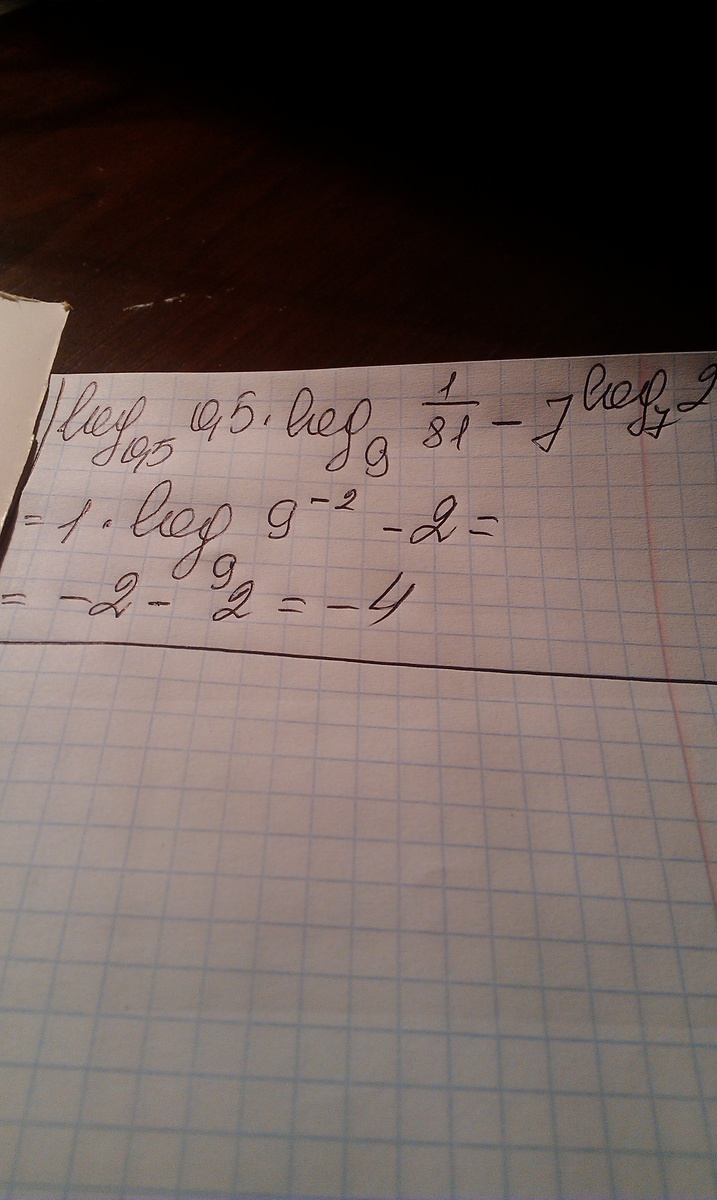 log₀,₅ 0,5 · log₉ 1/81 − 7^log₇2
= 1 · log₉ 9⁻² − 2 =
= −2 − 2 = −4